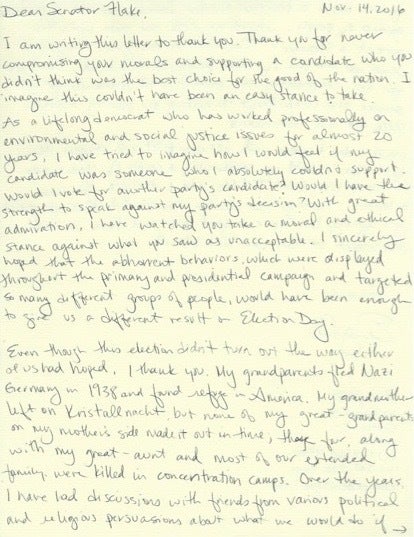 Dear Senator Flake, Nov. 14, 2016
I am writing this letter to thank you. Thank you for never
compromising your morals and supporting a candidate who you
didn't think was the best choice for the good of the nation. I
imagine this couldn't have been an easy stance to take.
As a lifelong democrat who has worked professionally on
environmental and social justice issues for almost 20
years, I have tried to imagine how I would feel if my
candidate was someone who I absolutely couldn't support.
Would I vote for another party's candidate? Would I have the
strength to speak against my party's decision? With great
admiration, I have watched you take a moral and ethical
stance against what you saw as unacceptable. I sincerely
hoped that the abhorrent behaviors, which were displayed
throughout the primary and presidential campaign and targeted
so many different groups of people, would have been enough
to give us a different result on Election Day.
Even though this election didn't turn out the way either
of us had hoped, I thank you. My grandparents fled Nazi
Germany in 1938 and found refuge in America. My grandmother
left on Kristallnacht, but none of my great-grandparents
on my mother's side made it out in time; the four, along
with my great-aunt and most of our extended
family, were killed in concentration camps. Over the years,
I have had discussions with friends from various political
and religious persuasions about what we would do if →